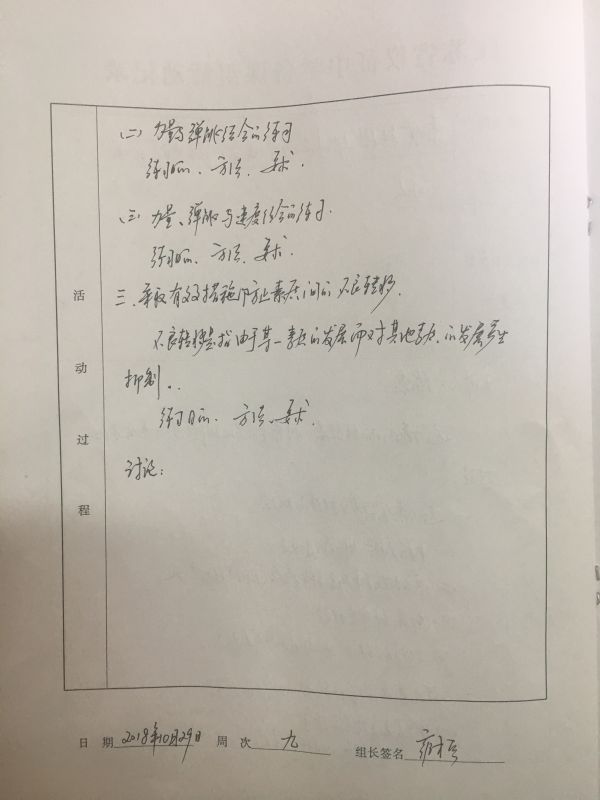 (二) 力量与弹跳结合的练习
练习目的、方法、要求.
(三) 力量、弹跳与速度结合的练习.
练习目的、方法、要求.
三、采取有效措施防止素质间的不良转移.
不良转移是指由于某一素质的发展而对其他素质的发展产生
抑制..
练习目的、方法、要求.
讨论:
活动过程
日 期 2018年10月29日 周 次 九 组长签名